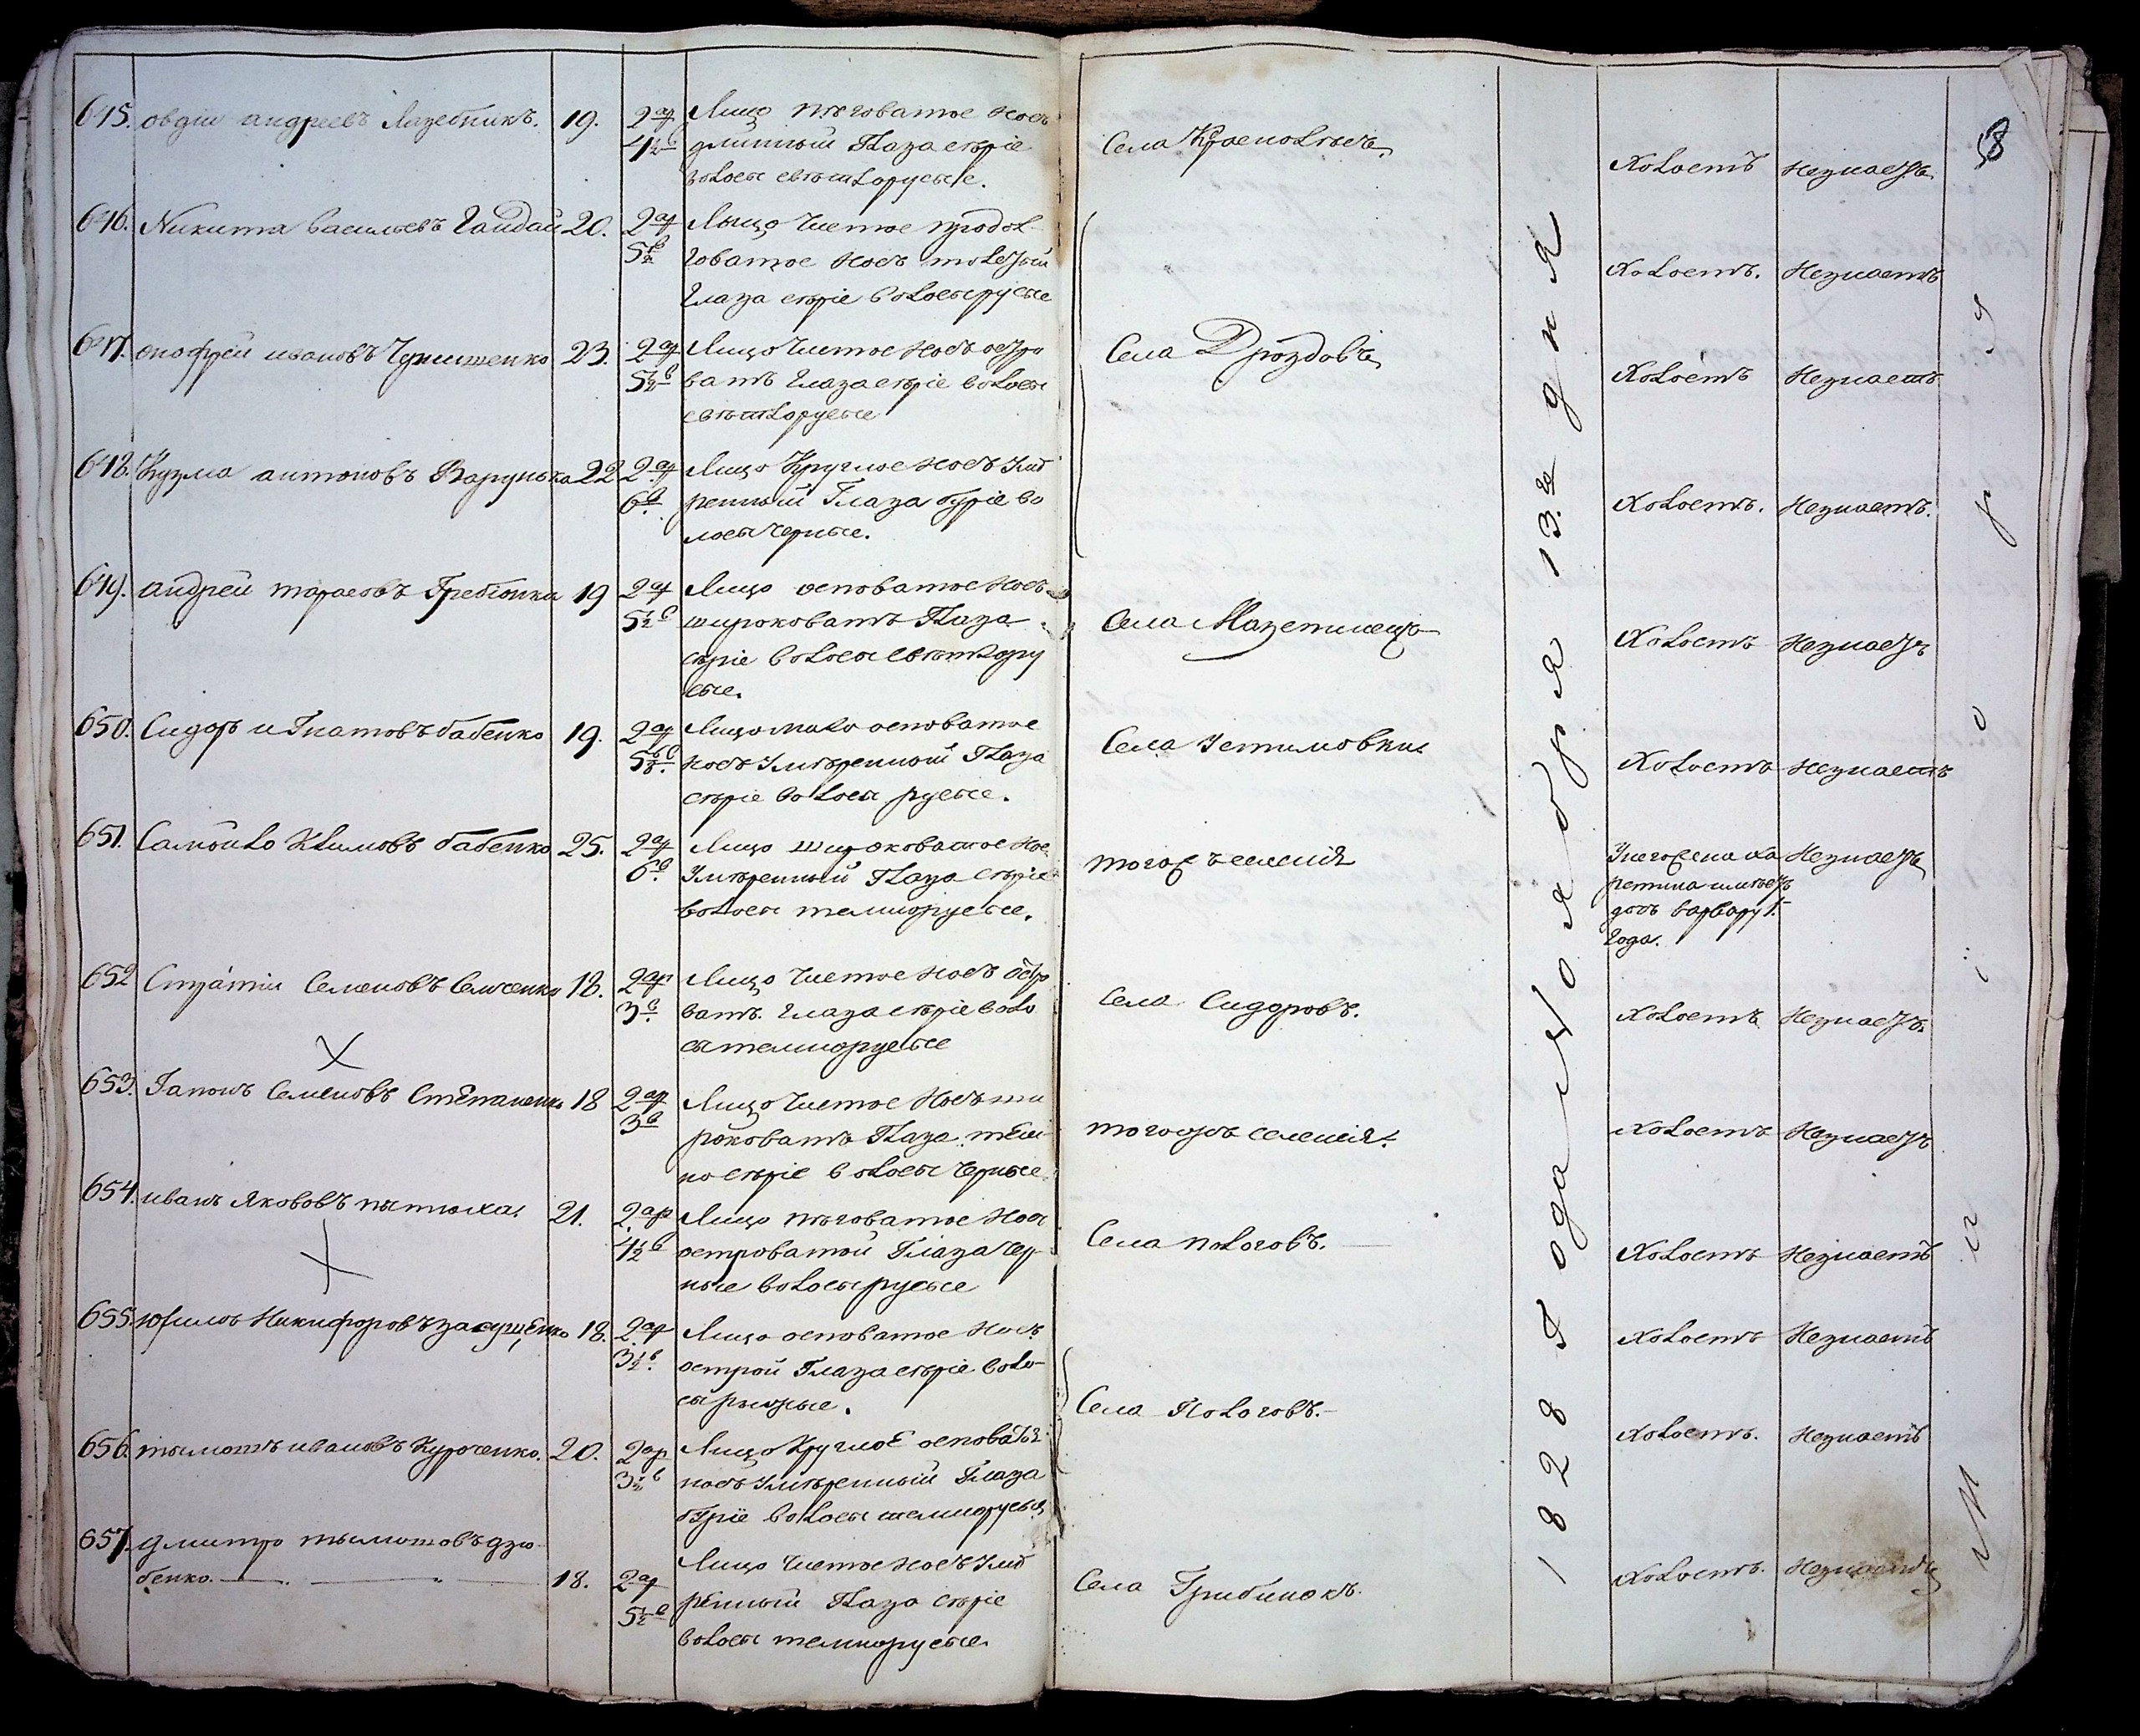 645. овдiи андреевъ Лазебникъ. 19. 2 ар 4½ в Лицо тѣговатое носъ
длинный Глаза сѣріе
волосы свѣтлорусые.
Села Красноселья. Холостъ Незнаетъ
8
646. Никита васильевъ Гайдай 20. 2 ар 5½ в Лицо Чистое продол-
Говатое носъ толстый
Глаза сѣріе волосы русые
Холостъ. Незнаетъ
647. онофрей ивановъ 23. 2 ар 5½ в Лицо Чистое носъ остро
ватъ Глаза сѣріе волосы
свѣтлорусые
Села Дроздовъ Холостъ Незнаетъ
648. Кузма антоновъ 22 2 ар 6 в. Лицо Круглое носъ Умѣ
ренный Глаза сѣріе во
лосы Черные.
Холостъ. Незнаетъ.
649. андрей тарасовъ Гребіонка 19 2 ар 5½ в Лицо осповатое носъ
широковатъ Глаза
сѣріе волосы свѣтлору
сые.
Села Холостъ Незнаетъ
650. Сидоръ иГнатовъ бабенко 19. 2 ар Лицо мало осповатое
носъ Умѣренный Глаза
сѣріе волосы русые.
Села Устимовки Холостъ Незнаетъ
651. Самойло Климовъ бабенко 25. 2 ар 6 в. Лицо широковатое нос
Умѣренный Глаза сѣріе
волосы темнорусые.
тогожъ селенія
Унего жена ка
тетина имѣетъ
дочь варвару 1.
Года.
Незнаетъ
652 Стратiи Семеновъ 18. 2 ар 3 в. Лицо Чистое носъ остро
ватъ. Глаза сѣріе воло
сы темнорусые
Села Сидоровъ. Холостъ Незнаетъ.
653. Гапонъ Семеновъ Степаненко 18 2 ар 3 в Лицо Чистое Носъ ши
роковатъ Глаза тем
но сѣріе волосы Черные.
тогожъ селенія. Холостъ Незнаетъ
654. иванъ Якововъ 21. 2. ар 4½ в Лицо тѣговатое Носъ
островатой Глаза Чер
ные волосы русые
Села пологовъ. Холостъ Незнаетъ
655. Юхимъ Никифоровъ 18. 2. ар 3½ в. Лицо осповатое Носъ
острой Глаза сѣріе воло-
сы рыжые.
Холостъ Незнаетъ
Села Пологовъ.
656. тымошъ ивановъ Куроченко. 20. 2 ар 3½ в Лицо Круглое осповатое
носъ Умѣренный Глаза
сѣріе волосы темнорусые
Холостъ. Незнаетъ
657. дмитро тымошовъ дзю
бенко. 18. 2 ар 5½ в Лицо Чистое носъ Умѣ
ренный Глаза сѣріе
волосы темнорусые
Села Холостъ. Незнаетъ
1828 Года Ноября 13.го дня